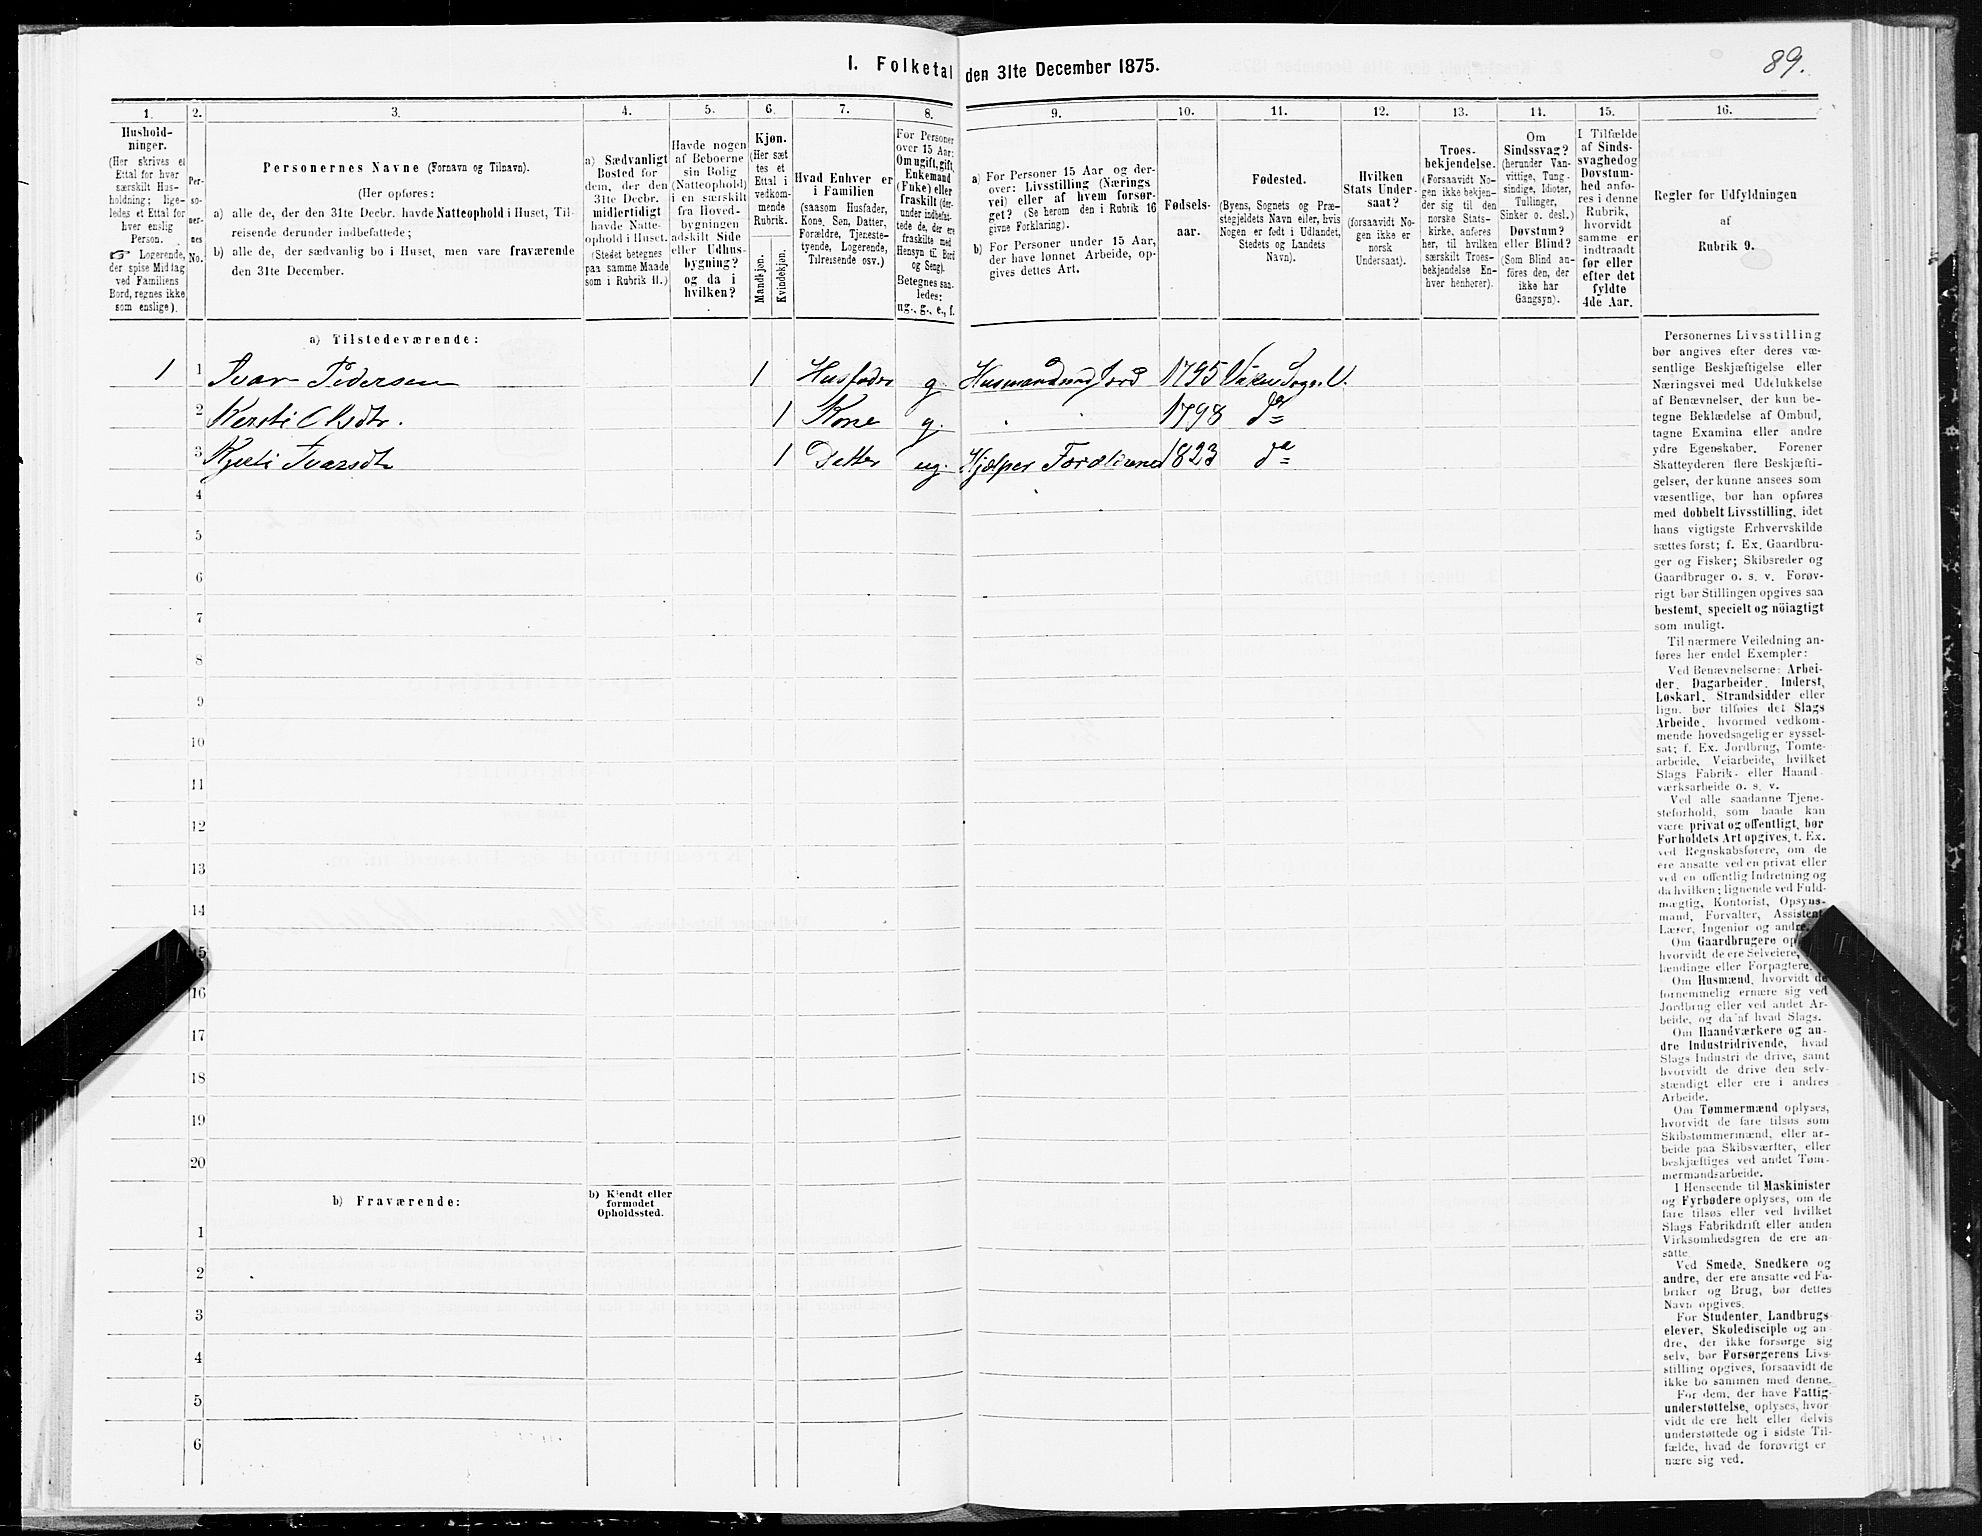 I. Folketal den 31te December 1875.
89.
1. 2. 3. 4. 5. 6. 7. 8. 9. 10. 11. 12. 13. 14. 15. 16.
Hushold-
ninger.
(Her skrives et
Ettal for hver
særskilt Hus-
holdning; lige-
ledes et Ettal for
hver enslig
Person.
☞ Logerende,
der spise Middag
ved Familiens
Bord, regnes ikke
som enslige).
Per-
so-
ner-
nes
No.
Personernes Navne (Fornavn og Tilnavn).
(Her opføres:
a) alle de, der den 31te Decbr. havde Natteophold i Huset, Til-
reisende derunder indbefattede;
b) alle de, der sædvanlig bo i Huset, men vare fraværende
den 31te December.
a) Sædvanligt
Bosted for
dem, der den
31te Decbr.
midlertidigt
havde Natte-
ophold i Huset.
(Stedet betegnes
paa samme Maade
som i Rubrik 11.)
Havde nogen
af Beboerne
sin Bolig
(Natteophold)
i en særskilt
fra Hoved-
bygningen
adskilt Side
eller Udhus-
bygning?
og da i
hvilken?
Kjøn.
(Her sæt-
tes et
Ettal i
vedkom-
mende
Rubrik.
Mandkjøn.
Kvindekjøn.
Hvad Enhver er
i Familien
(saasom Husfader,
Kone, Søn, Datter,
Forældre, Tjeneste-
tyende, Logerende,
Tilreisende osv.)
For Personer
over 15 Aar:
Om ugift, gift,
Enkemand
(Enke) eller
fraskilt (der-
under indbefat-
tede de, der ere
fraskilte med
Hensyn til Bord
og Seng).
Betegnes saa-
ledes:
ug., g., e., f.
a) For Personer 15 Aar og der-
over: Livsstilling (Nærings
vei) eller af hvem forsør-
get? (Se herom den i Rubrik 16
givne Forklaring).
b) For Personer under 15 Aar,
der have lønnet Arbeide, op-
gives dettes Art.
Fødsels-
aar.
Fødested.
(Byens, Sognets og Præ-
stegjeldets Navn eller, hvis
Nogen er født i Udlandet,
Stedets og Landets
Navn).
Hvilken
Stats Under-
saat?
(forsaavidt No-
gen ikke er
norsk
Undersaat).
Troes-
bekjendelse.
(Forsaavidt No-
gen ikke bekjen-
der sig til den
norske Stats-
kirke, anføres
her, til hvilken
særskilt Troes-
bekjendelse En-
hver henhører).
Om
Sindssvag?
(herunder Van-
vittige, Tung-
sindige, Idioter,
Tullinger,
Sinker o. desl.)
Døvstum?
eller Blind?
(Som Blind an-
føres den, der
ikke har
Gangsyn).
I Tilfælde
af Sinds-
svaghed og
Døvstum-
hed anfø-
res i denne
Rubrik,
hvorvidt
samme er
indtraadt
før eller
efter det
fyldte
4de Aar.
Regler for Udfyldningen
af
Rubrik 9.
a) Tilstedeværende:
1 1 Ivar Pedersen 1 Husfader g. Husmand med Jord 1795
2 1 Kone g. 1798 do
3 Ivarsdt 1 Datter ug. Hjælper Forældrene 1823 do
4
5
6
7
8
9
10
11
12
13
14
15
16
17
18
19
20
b) Fraværende:
b) Kjendt eller
formodet
Opholdssted.
1
2
3
4
5
6
Personernes Livsstilling
bør angives efter deres væ-
sentlige Beskjæftigelse eller
Næringsvei med Udelukkelse
af Benævnelser, der kun be-
tegne Beklædelse af Ombud,
tagne Examina eller andre
ydre Egenskaber. Forener
Skatteyderen flere Beskjæfti-
gelser, der kunne ansees som
væsentlige, bør han opføres
med dobbelt Livsstilling, idet
hans vigtigste Erhvervskilde
sættes først; f. Ex. Gaardbru-
ger og Fisker; Skibsreder og
Gaardbruger o. s. v. Forøv-
rigt bør Stillingen opgives saa
bestemt, specielt og nöiagtigt
som muligt.
Til nærmere Veiledning an-
føres her endel Exempler:
Ved Benævnelserne: Arbei-
der, Dagarbeider, Inderst,
Løskarl, Strandsidder eller
lign. bør tilføies det Slags
Arbeide, hvormed vedkom-
mende hovedsagelig er syssel-
sat; f. Ex. Jordbrug, Tomte-
arbeide, Veiarbeide, hvilket
Slags Fabrik- eller Haand-
værksarbeide o. s. v.
Ved alle saadanne Tjene-
steforhold, som baade kan
være privat og offentligt, bør
Forholdets Art opgives, t. Ex.
ved Regnskabsførere, om de
ere ansatte ved en privat eller
ved en offentlig Indretning og
da hvilken; lignende ved Fuld-
mægtig, Kontorist, Opsyns-
mand, Forvalter, Assistent,
Lærer, Ingeniør og andre.
Om Gaardbrugere op
hvorvidt de ere Selveiere,
lændinge eller Forpagtere.
Om Husmænd, hvorvidt de
fornemmelig ernære sig ved
Jordbrug eller ved andet Ar-
beide, og da af hvad Slags.
Om Haandværkere og an-
dre Industridrivende, hvad
Slags Industri de drive, samt
hvorvidt de drive den selv-
stændigt eller ere i andres
Arbeide.
Om Tømmermænd oplyses,
hvorvidt de fare tilsøs som
Skibstømmermænd, eller ar-
beide paa Skibsværfter, eller
beskjæftiges ved andet Tøm-
mermandsarbeide.
I Henseende til Maskinister
og Fyrbødere oplyses, om de
fare tilsøs eller ved hvilket
Slags Fabrikdrift eller anden
Virksomhedsgren de ere an-
satte.
Ved Smede, Snedkere og
andre, der ere ansatte ved Fa-
briker og Brug, bør dettes
Navn opgives.
For Studenter, Landbrugs-
elever, Skoledisciple og an-
dre, der ikke forsørge sig
selv, bør Forsørgerens Livs-
stilling opgives, forsaavidt de
ikke bo sammen med denne.
For dem, der have Fattig-
understøttelse, oplyses, hvor-
vidt de ere helt eller delvis
understøttede og i sidste Til-
fælde, hvad de forøvrigt er
nære sig ved.